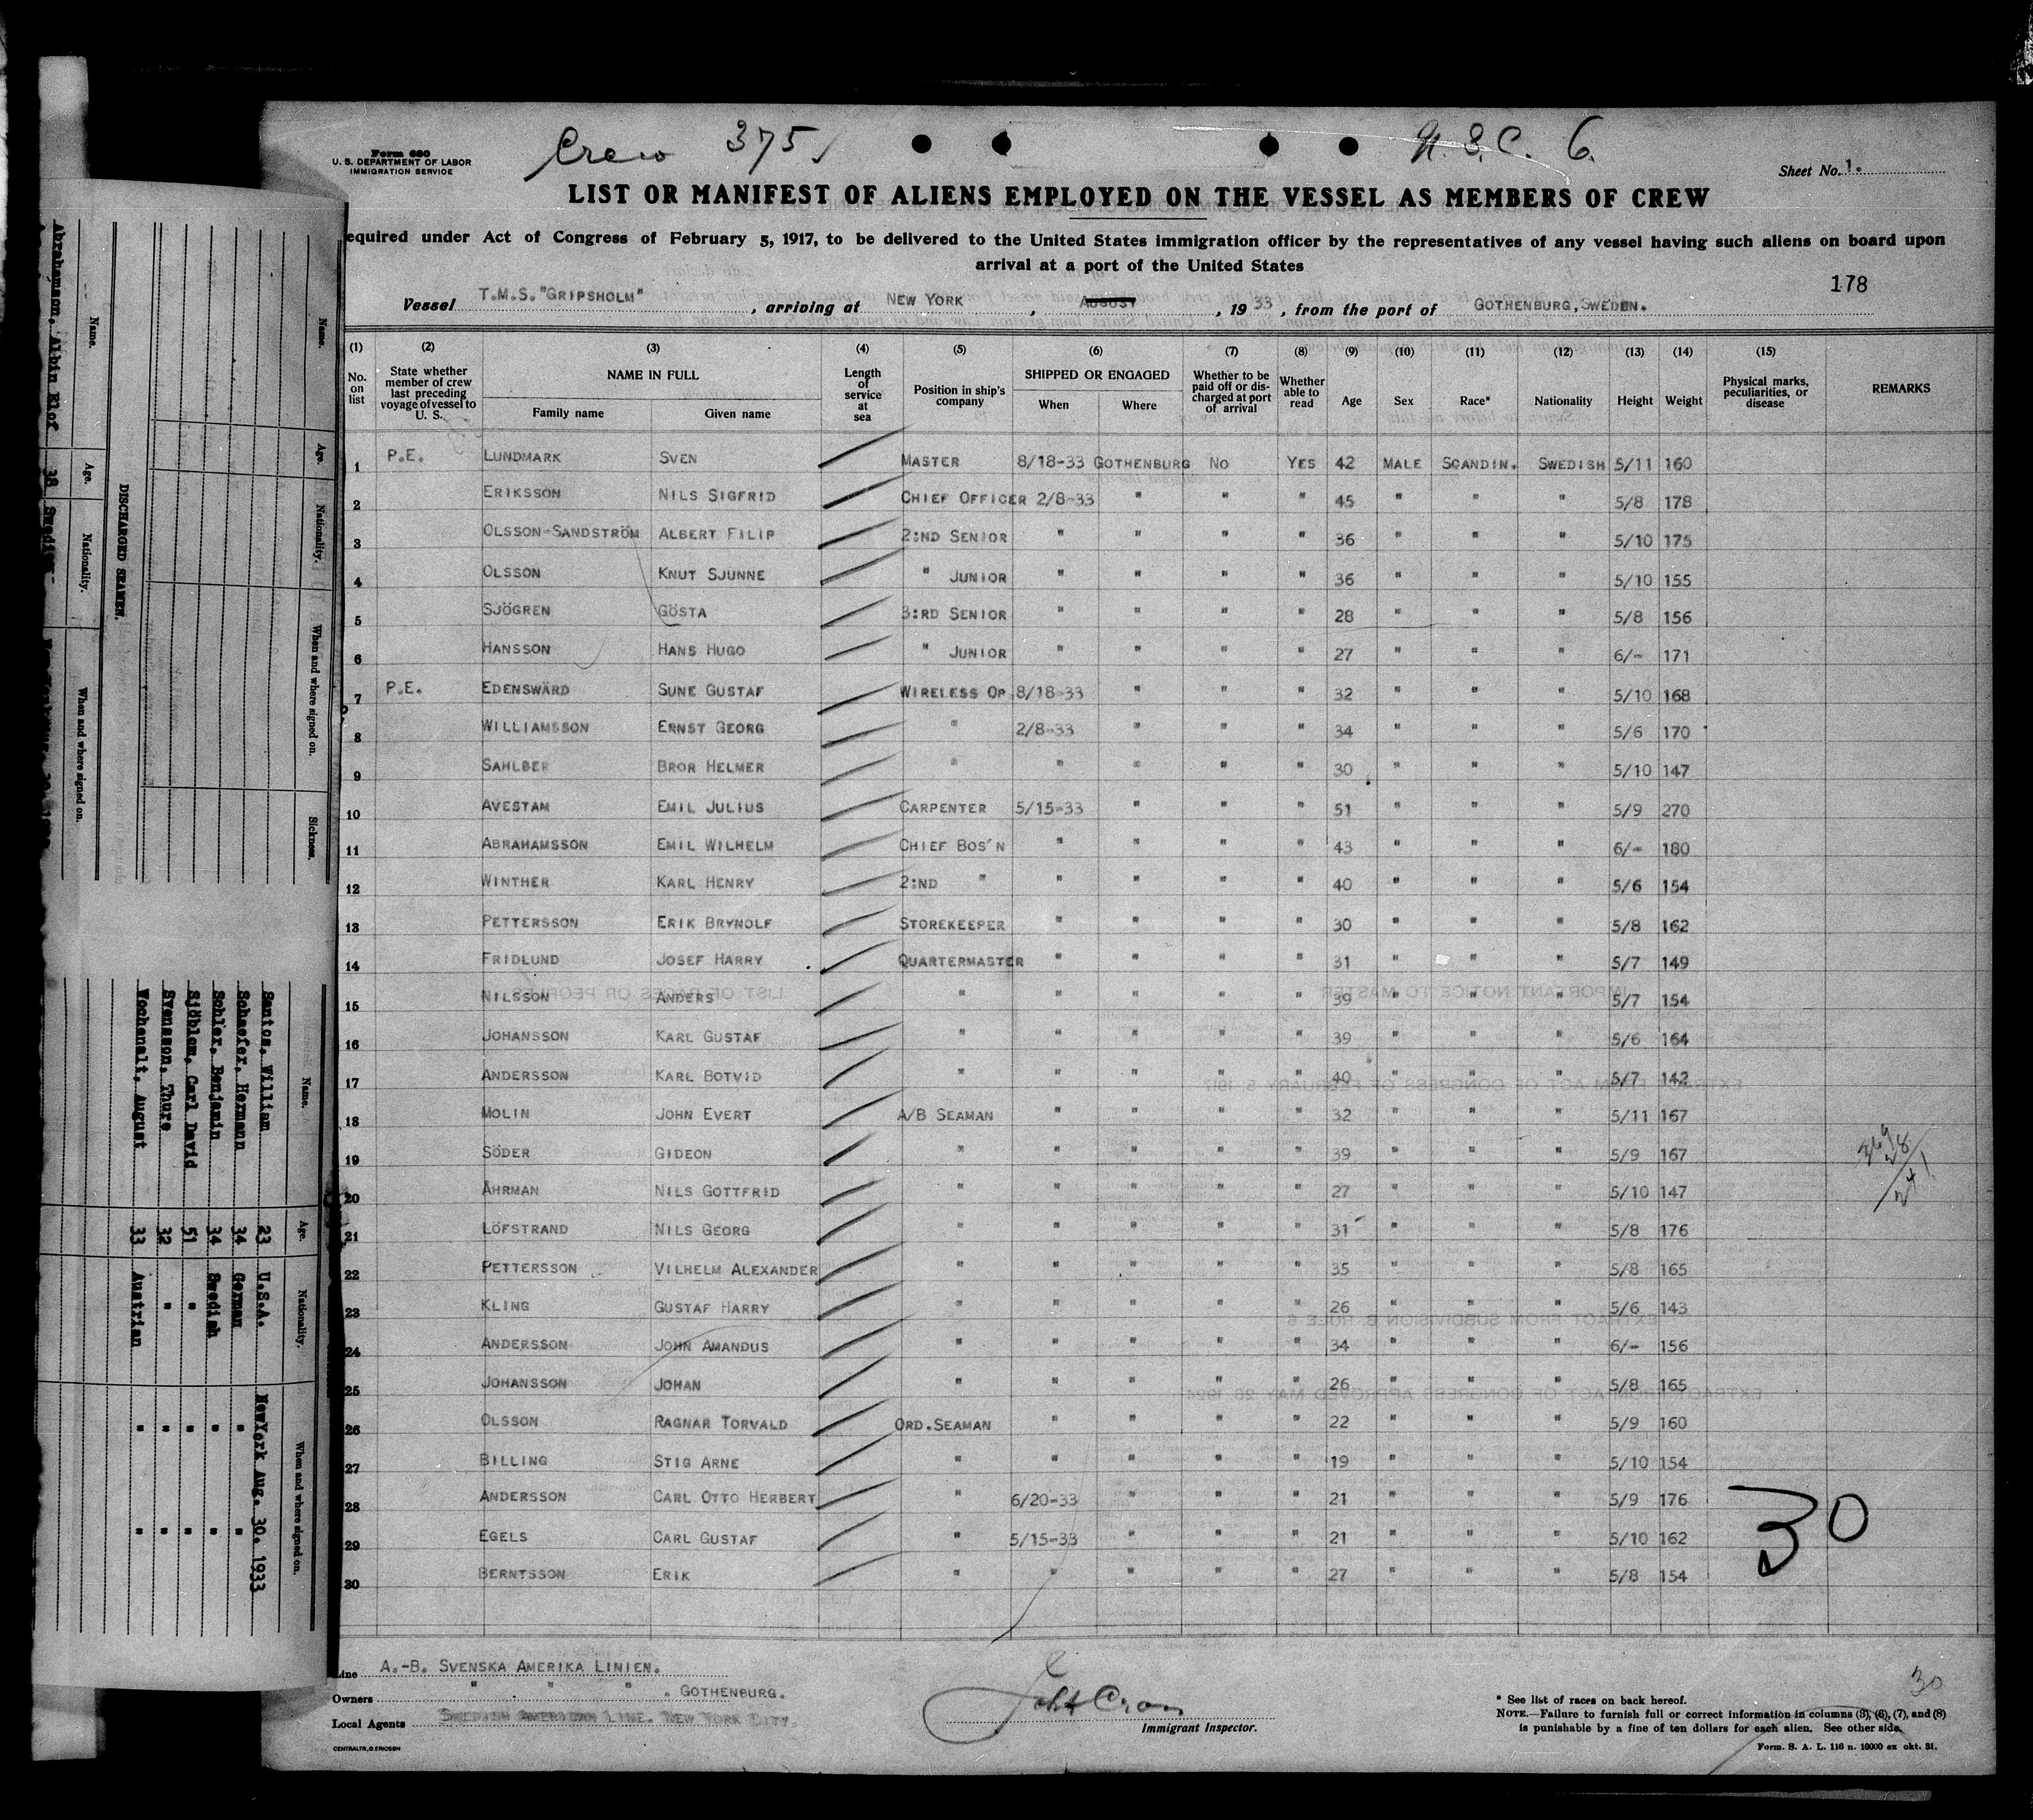 Crew 375
N.S.C. 6.
Form 680
U. S. DEPARTMENT OF LABOR
IMMIGRATION SERVICE
Sheet No. 1.
LIST OR MANIFEST OF ALIENS EMPLOYED ON THE VESSEL AS MEMBERS OF CREW
equired under Act of Congress of February 5, 1917, to be delivered to the United States immigration officer by the representatives of any vessel having such aliens on board upon
arrival at a port of the United States
178
Vessel T.M.S. "GRIPSHOLM", arriving at NEW YORK, AUGUST, 1933, from the port of GOTHENBURG, SWEDEN.
(1) (2) (3) (4) (5) (6) (7) (8) (9) (10) (11) (12) (13) (14) (15)
No. on list | State whether member of crew last preceding voyage of vessel to U. S. | NAME IN FULL Family name Given name | Length of service at sea | Position in ship's company | SHIPPED OR ENGAGED When Where | Whether to be paid off or discharged at port of arrival | Whether able to read | Age | Sex | Race* | Nationality | Height | Weight | Physical marks, peculiarities, or disease | REMARKS
1 P.E. LUNDMARK SVEN MASTER 8/18-33 GOTHENBURG NO YES 42 MALE SCANDIN. SWEDISH 5/11 160
2 ERIKSSON NILS SIGFRID CHIEF OFFICER 2/8-33 " " " 45 " " " 5/8 178
3 OLSSON-SANDSTRÖM ALBERT FILIP 2:ND SENIOR " " " " 36 " " " 5/10 175
4 OLSSON KNUT SJUNNE " JUNIOR " " " " 36 " " " 5/10 155
5 SJÖGREN GÖSTA 3:RD SENIOR " " " " 28 " " " 5/8 156
6 HANSSON HANS HUGO " JUNIOR " " " " 27 " " " 6/- 171
7 P.E. EDENSWÄRD SUNE GUSTAF WIRELESS OP. 8/18-33 " " " 32 " " " 5/10 168
8 WILLIAMSSON ERNST GEORG " 2/8-33 " " " 34 " " " 5/6 170
9 SAHLBER BROR HELMER " " " " " 30 " " " 5/10 147
10 AVESTAM EMIL JULIUS CARPENTER 5/15-33 " " " 51 " " " 5/9 270
11 ABRAHAMSSON EMIL WILHELM CHIEF BOS'N " " " " 43 " " " 6/- 180
12 WINTHER KARL HENRY 2:ND " " " " " 40 " " " 5/6 154
13 PETTERSSON ERIK BRYNOLF STOREKEEPER " " " " 30 " " " 5/8 162
14 FRIDLUND JOSEF HARRY QUARTERMASTER " " " " 31 " " " 5/7 149
15 NILSSON ANDERS " " " " " 39 " " " 5/7 154
16 JOHANSSON KARL GUSTAF " " " " " 39 " " " 5/6 164
17 ANDERSSON KARL BOTVID " " " " " 40 " " " 5/7 142
18 MOLIN JOHN EVERT A/B SEAMAN " " " " 32 " " " 5/11 167
19 SÖDER GIDEON " " " " " 39 " " " 5/9 167
20 ÅHRMAN NILS GOTTFRID " " " " " 27 " " " 5/10 147
21 LÖFSTRAND NILS GEORG " " " " " 31 " " " 5/8 176
22 PETTERSSON VILHELM ALEXANDER " " " " " 35 " " " 5/8 165
23 KLING GUSTAF HARRY " " " " " 26 " " " 5/6 143
24 ANDERSSON JOHN AMANDUS " " " " " 34 " " " 6/- 156
25 JOHANSSON JOHAN " " " " " 26 " " " 5/8 165
26 OLSSON RAGNAR TORVALD ORD.SEAMAN " " " " 22 " " " 5/9 160
27 BILLING STIG ARNE " " " " " 19 " " " 5/10 154
28 ANDERSSON CARL OTTO HERBERT " 6/20-33 " " " 21 " " " 5/9 176
29 EGELS CARL GUSTAF " 5/15-33 " " " 21 " " " 5/10 162
30 BERNTSSON ERIK " " " " " 27 " " " 5/8 154
30
Line A.-B. SVENSKA AMERIKA LINIEN.
Owners " " " . GOTHENBURG.
Local Agents SWEDISH AMERICAN LINE. NEW YORK CITY.
CENTRALTR. G. ERICSON
Immigrant Inspector.
30
* See list of races on back hereof.
NOTE.—Failure to furnish full or correct information in columns (3), (6), (7), and (8)
is punishable by a fine of ten dollars for each alien. See other side.
Form. S. A. L. 116 n. 10000 ex okt. 31.
Name. Age. Nationality. When and where signed on. Sickness.
DISCHARGED SEAMEN.
Name. Age. Nationality. When and where signed on.
Abrahamson, Albin Elof 38 Swedish
Name. Age. Nationality. When and where signed on.
Santos, William 23 U.S.A. NewYork Aug. 30. 1933
Schaefer, Hermann 34 German " "
Sohler, Benjamin 34 Swedish " "
Sjöblom, Carl David 51 " " "
Svensson, Thure 32 " " "
Wochenalt, August 33 Austrian " "